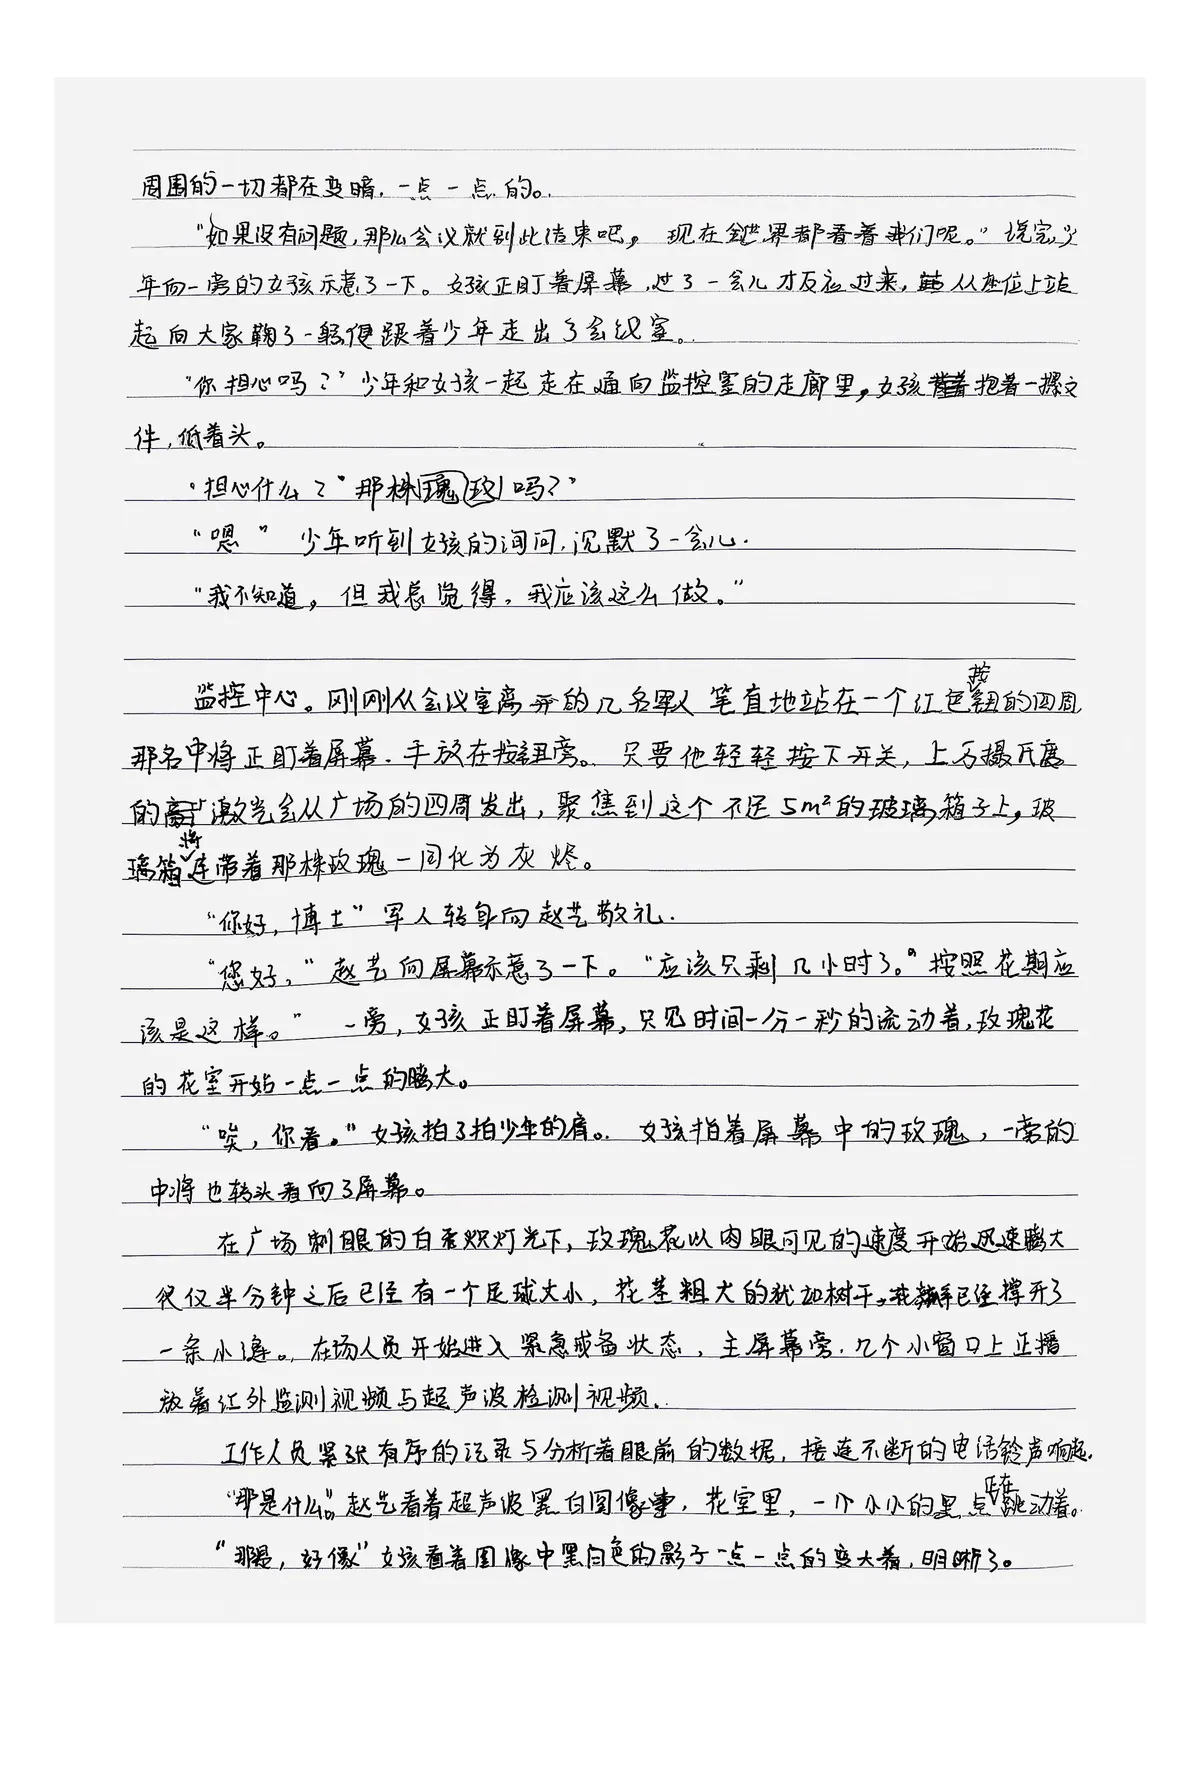 周围的一切都在变暗，一点一点的。
“如果没有问题，那么会议就到此结束吧，现在全世界都看着我们呢。”说完，少
年向一旁的女孩示意了一下。女孩正盯着屏幕，过了一会儿才反应过来，从座位上站
起向大家鞠了一躬便跟着少年走出了会议室。
“你担心吗？”少年和女孩一起走在通向监控室的走廊里，女孩抱着一摞文
件，低着头。
“担心什么？”那株瑰玫吗？”
“嗯”少年听到女孩的询问，沉默了一会儿.
“我不知道，但我总觉得，我应该这么做。”
监控中心。刚刚从会议室离开的几名军人笔直地站在一个红色按钮的四周
那名中将正盯着屏幕.手放在按钮旁。只要他轻轻按下开关，上万摄氏度
的激光会从广场的四周发出，聚焦到这个不足5m²的玻璃箱子上，玻
璃箱将连带着那株玫瑰一同化为灰烬。
“你好，博士”军人转身向赵艺敬礼.
“您好，”赵艺向屏幕示意了一下。“应该只剩几小时了。”按照花期应
该是这样。”一旁，女孩正盯着屏幕，只见时间一分一秒的流动着，玫瑰花
的花室开始一点一点的膨大。
“唉，你看。”女孩拍了拍少年的肩。女孩指着屏幕中的玫瑰，一旁的
中将也转头看向了屏幕。
在广场刺眼的白炽灯光下，玫瑰花以肉眼可见的速度开始迅速膨大
仅仅半分钟之后已经有一个足球大小，花茎粗大的犹如树干，已经撑开了
一条小缝。在场人员开始进入紧急戒备状态，主屏幕旁.几个小窗口上正播
放着红外监测视频与超声波检测视频.
工作人员紧张有序的记录与分析着眼前的数据，接连不断的电话铃声响起.
“那是什么。”赵艺看着超声波黑白图像，花室里，一个小小的黑点正在跳动着。
“那是，好像”女孩看着图像中黑白色的影子一点一点的变大着，明晰了。